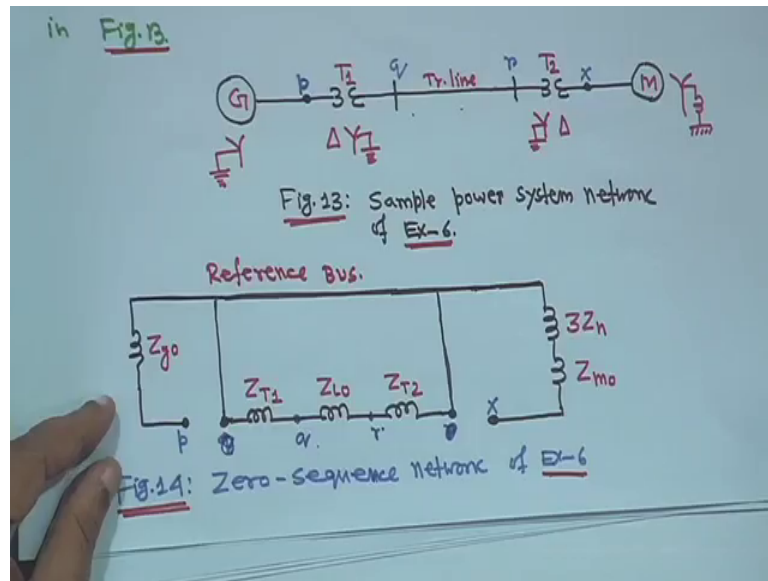 in Fig.13.
G p T1 q Tr.line r T2 x M
Δ Y Y Δ
Fig.13: Sample power system network
of Ex-6.
Reference Bus.
Zg0 3Zn
ZT1 ZL0 ZT2 Zm0
p q r x
Fig.14: Zero-sequence network of Ex-6